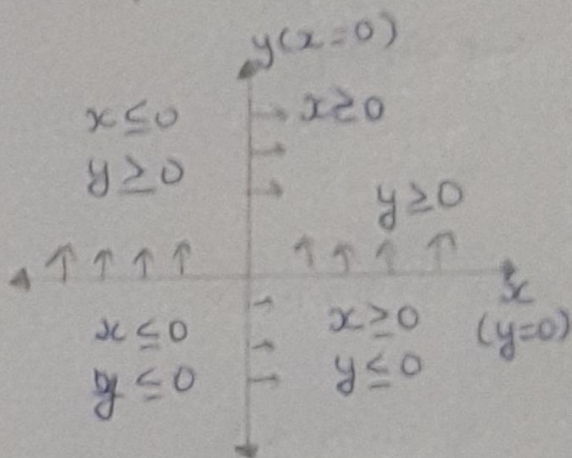 y(x=0)
x≤0
x≥0
y≥0
y≥0
x
(y=0)
x≤0
x≥0
y≤0
y≤0